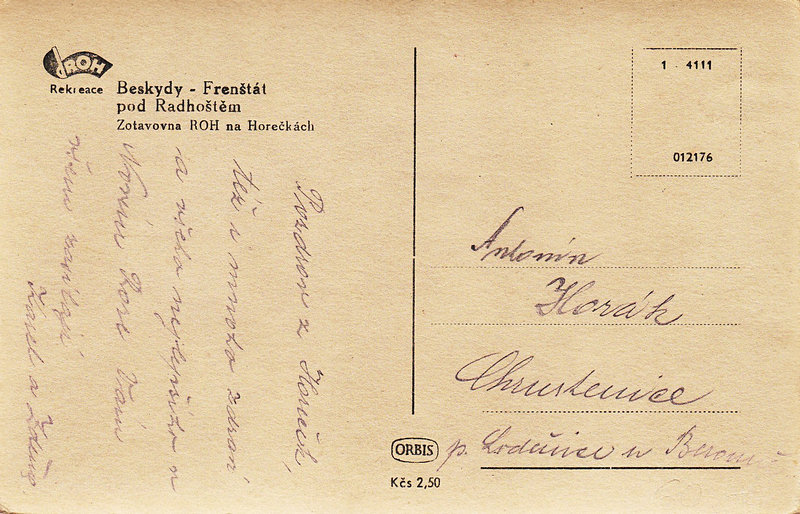 ROH
Rekreace
Beskydy - Frenštát
pod Radhoštěm
Zotavovna ROH na Horečkách
Pozdrav z Horeček,
též i mnoho zdraví
a všeho nejlepšího v
Novém Roce Vám
všem zasílají
Karel a
1 - 4111
012176
Antonín
Horák
Chrustenice
p. Loděnice u
ORBIS
Kčs 2,50